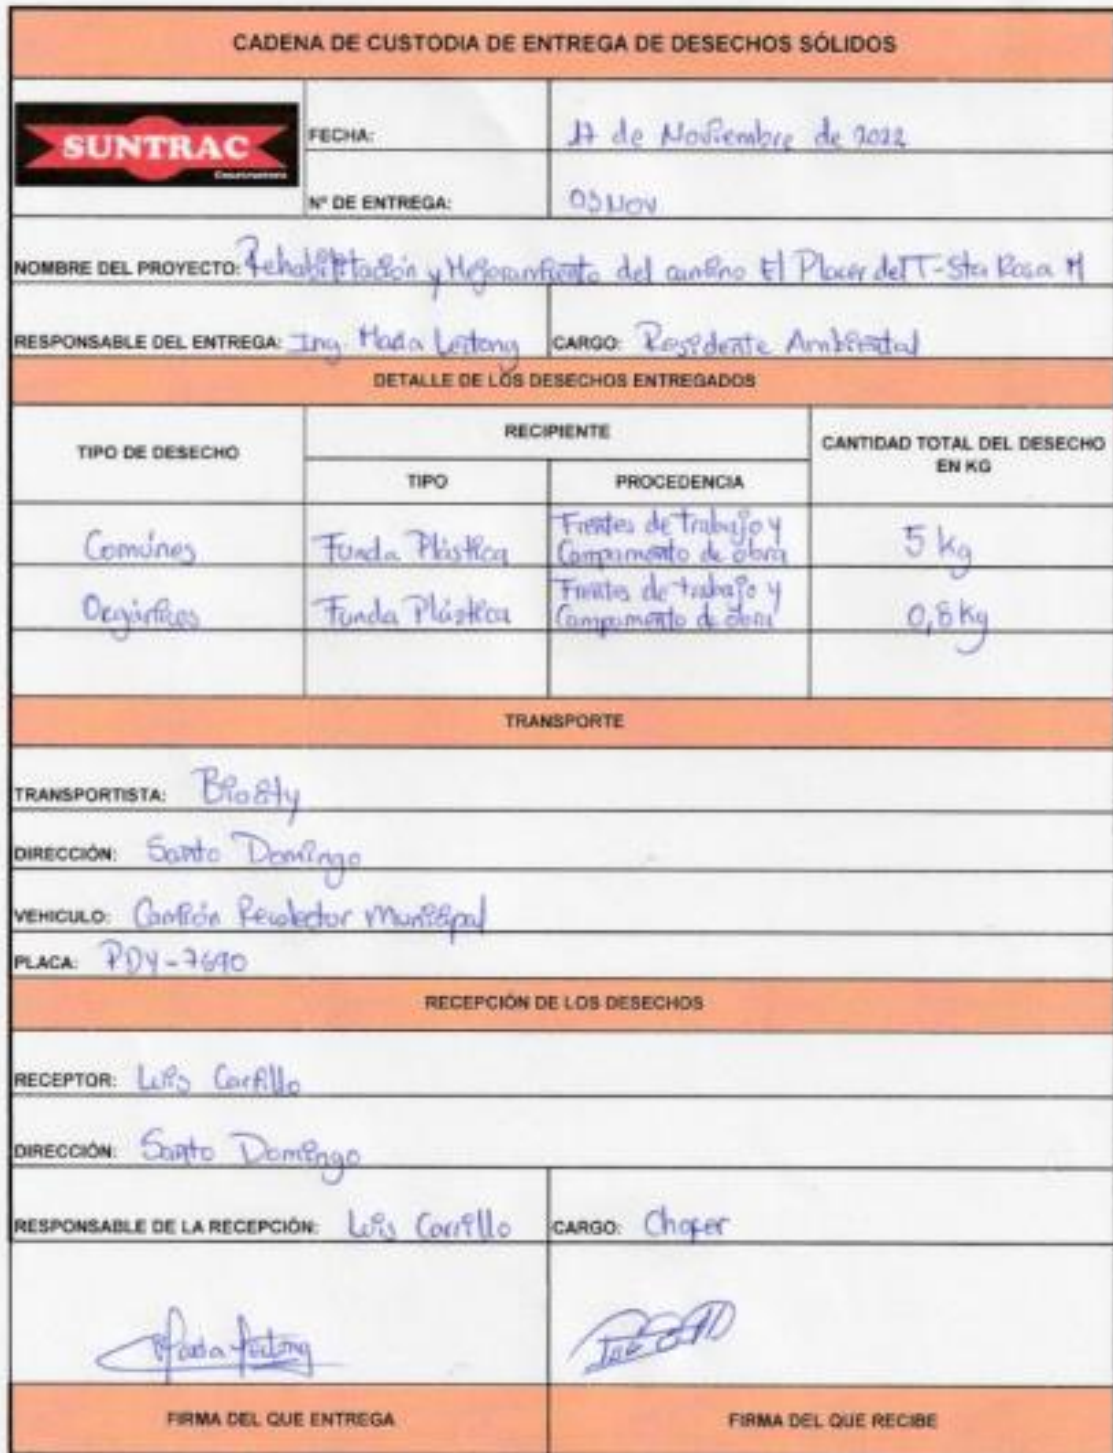 CADENA DE CUSTODIA DE ENTREGA DE DESECHOS SÓLIDOS
SUNTRAC
Constructora
FECHA: 17 de Noviembre de 2022
Nº DE ENTREGA: 03 Nov
NOMBRE DEL PROYECTO: Rehabilitación y Mejoramiento del camino El Placer del T-Sta Rosa M
RESPONSABLE DEL ENTREGA: Ing. María Leitong CARGO: Residente Ambiental
DETALLE DE LOS DESECHOS ENTREGADOS
TIPO DE DESECHO RECIPIENTE CANTIDAD TOTAL DEL DESECHO EN KG
TIPO PROCEDENCIA
Comúnes Funda Plástica Frentes de trabajo y Campamento de obra 5 kg
Orgánicos Funda Plástica Frentes de trabajo y Campamento de obra 0,8 kg
TRANSPORTE
TRANSPORTISTA: Biocity
DIRECCIÓN: Santo Domingo
VEHICULO: Camión Recolector Municipal
PLACA: PDY-7690
RECEPCIÓN DE LOS DESECHOS
RECEPTOR: Luis Carrillo
DIRECCIÓN: Santo Domingo
RESPONSABLE DE LA RECEPCIÓN: Luis Carrillo CARGO: Chofer
María Leitong
FIRMA DEL QUE ENTREGA FIRMA DEL QUE RECIBE